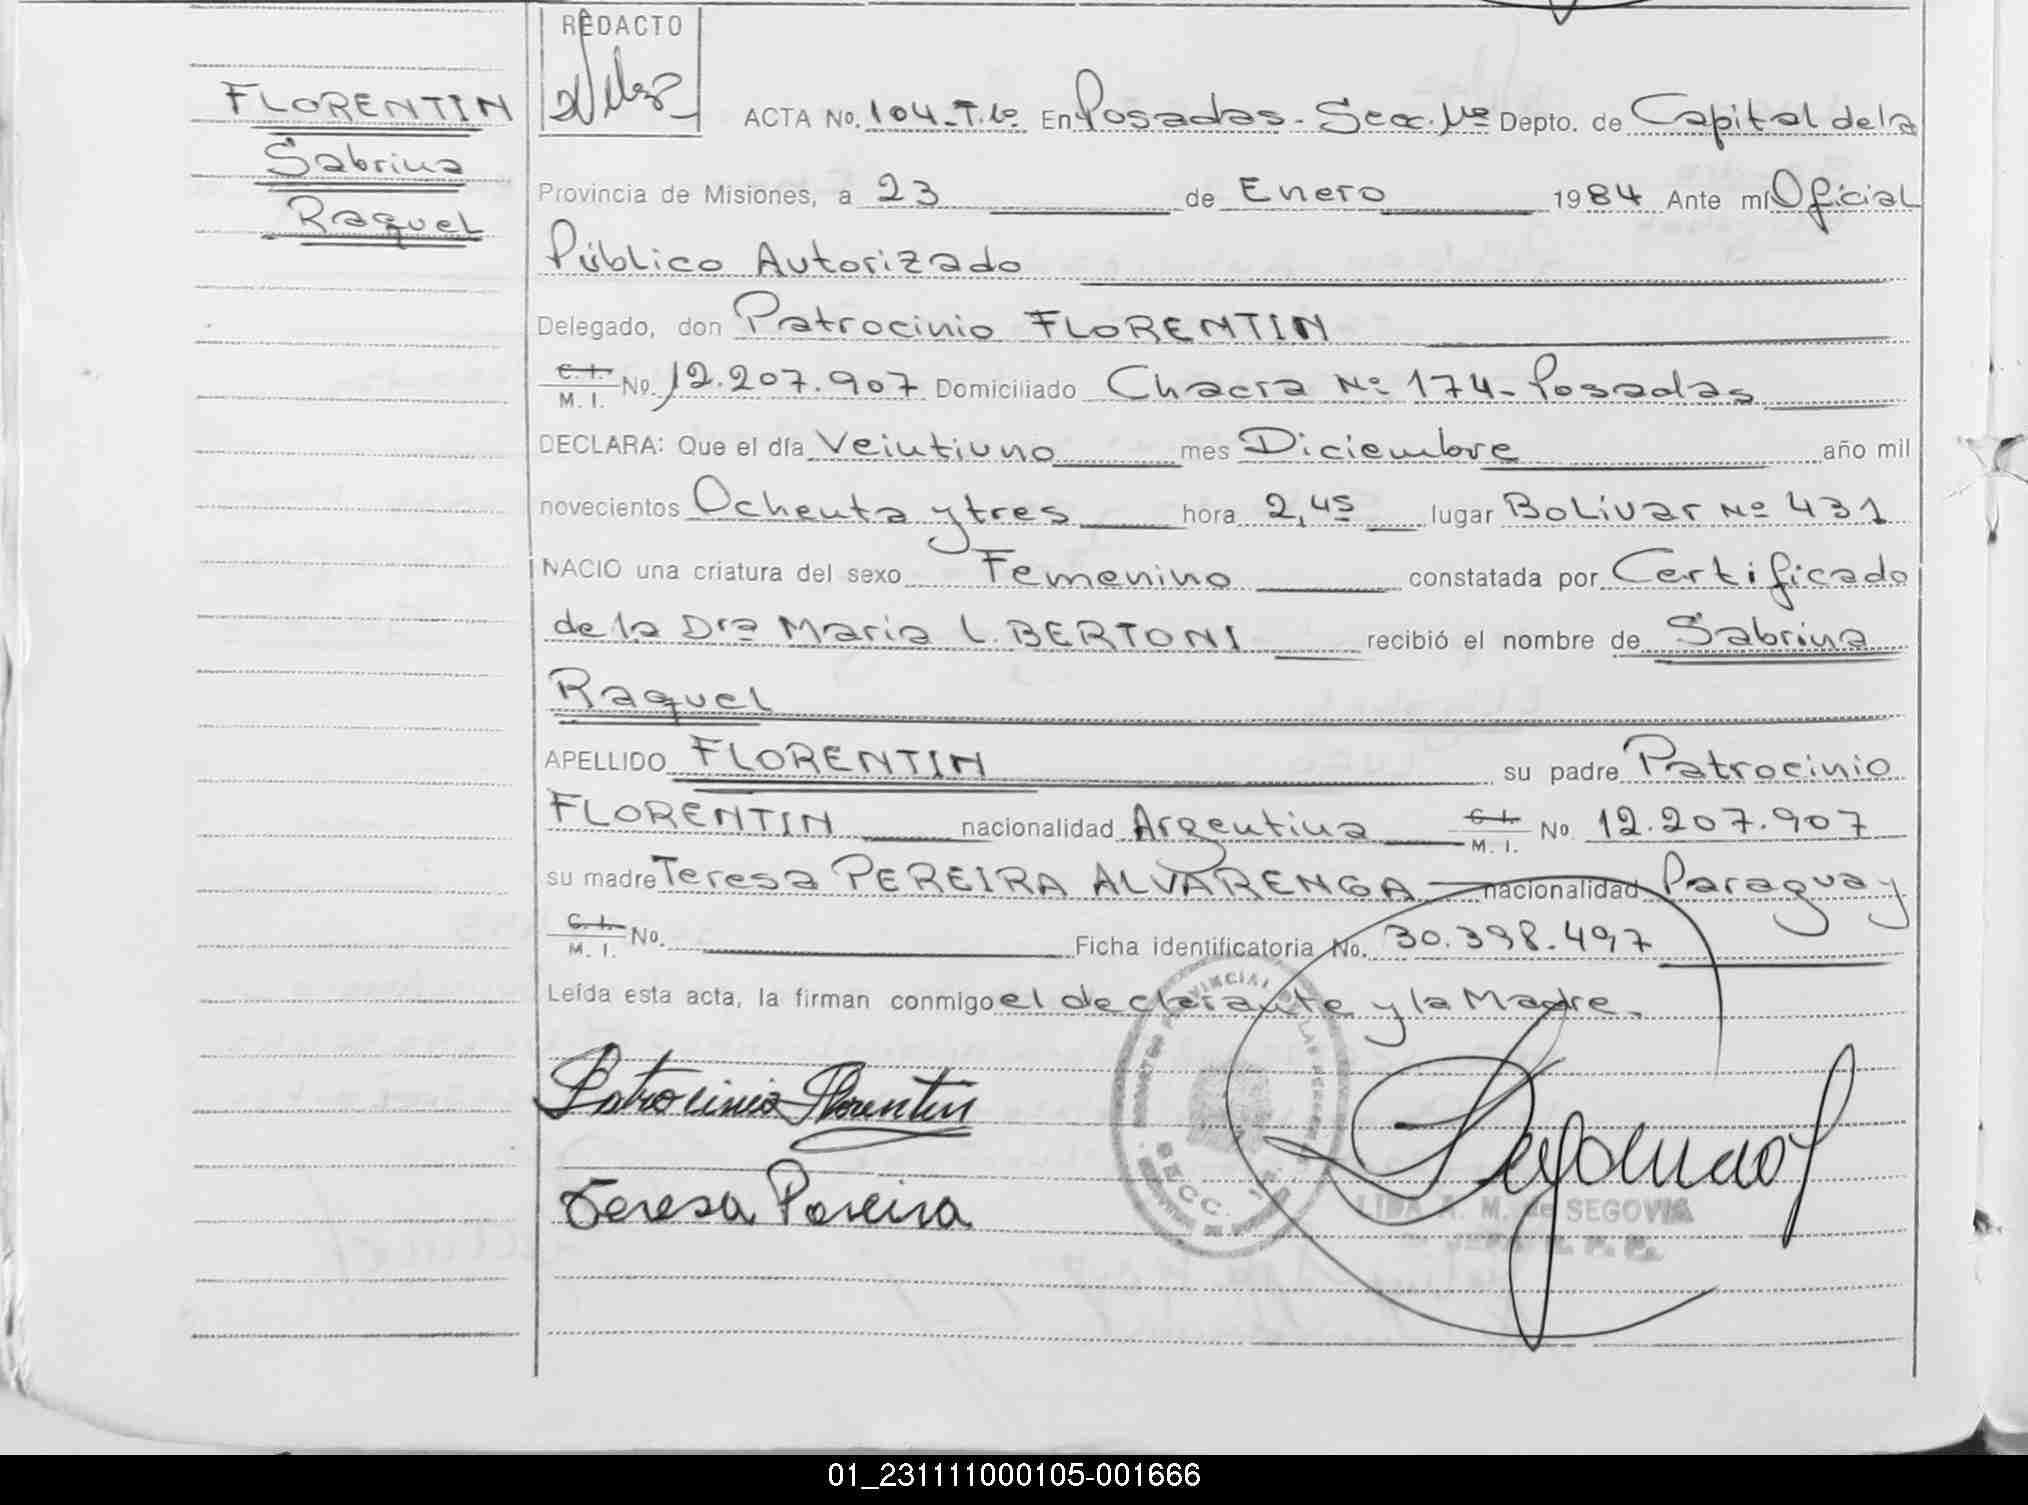 FLORENTIN
Sabrina
Raquel
REDACTO
ACTA No. 104-T.1º En Posadas - Secc. 1ª Depto. de Capital de la
Provincia de Misiones, a 23 de Enero 1984 Ante mí Oficial
Público Autorizado
Delegado, don Patrocinio FLORENTIN
C. I. M. I. No. 12.207.907 Domiciliado Chacra Nº 174 - Posadas
DECLARA: Que el día Veintiuno mes Diciembre año mil
novecientos Ochenta y tres hora 2,45 lugar Bolivar Nº 431
NACIO una criatura del sexo Femenino constatada por Certificado
de la Dra Maria L. BERTONI recibió el nombre de Sabrina
Raquel
APELLIDO FLORENTIN su padre Patrocinio
FLORENTIN nacionalidad Argentina C. I. M. I. No. 12.207.907
su madre Teresa PEREIRA ALVARENGA nacionalidad Paraguay
C. I. M. I. No. Ficha identificatoria No. 30.398.497
Leída esta acta, la firman conmigo el declarante y la Madre.
Patrocinio Florentin
Teresa Pereira
LIDA A. M. de SEGOVIA
01_231111000105-001666